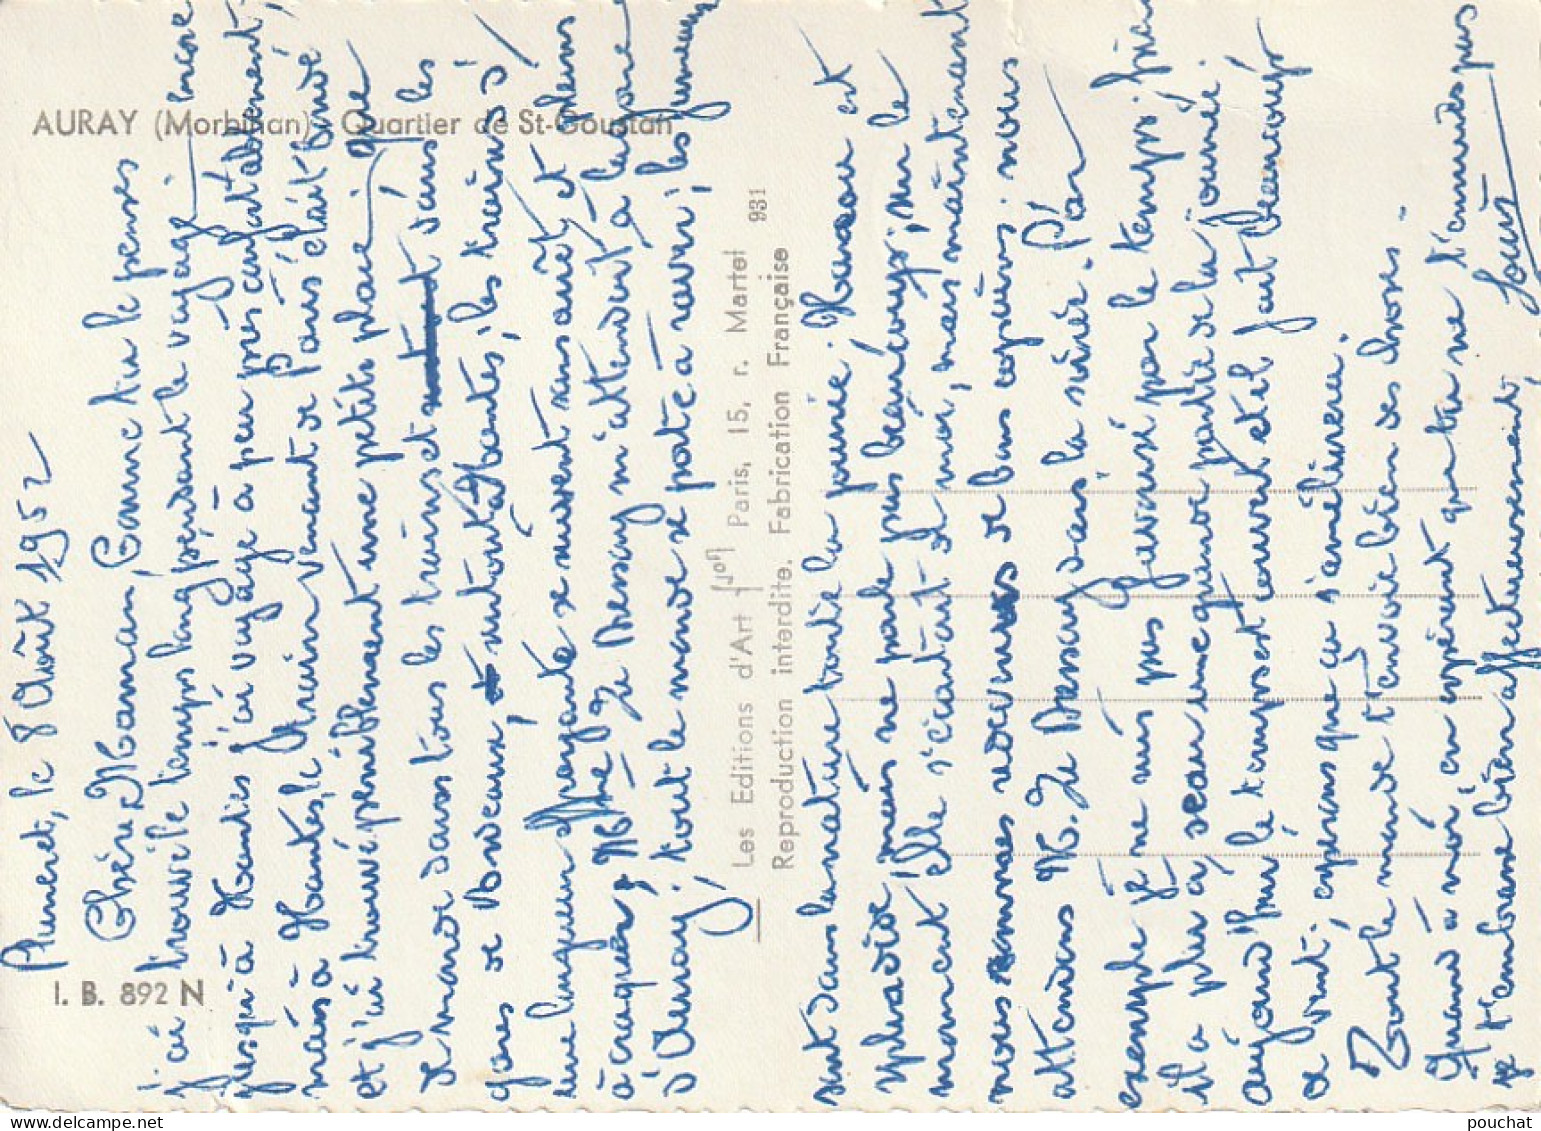 AURAY (Morbihan) - Quartier de St-Goustan
I. B. 892 N
Les Editions d'Art "JOS" Paris, 15, r. Martel
Reproduction interdite. Fabrication Française
931
Plumeret, le 8 Août 1952
Chère Maman, Comme tu le penses
j'ai trouvé le temps long pendant le voyage encore
jusqu'à Nantes j'ai voyagé à peu près confortablement,
mais à Nantes, le train venant de Paris était bondé
et j'ai trouvé péniblement une petite place; que
de monde dans tous les trains et dans les
gares de Bordeaux, surtout à Nantes; les trains d'
une longueur effrayante se suivent sans arrêt et pleins
à craquer; M. Le Dressay m'attendait à la gare
d'Auray; tout le monde se porte à ravir; les jumeaux
sont dans la nature toute la journée. Maman est
splendide, mais ne parle pas beaucoup; sur le
moment elle s'écartait de moi, mais maintenant
nous sommes devenus de bons copains; nous
attendons M. Le Dressay dans la soirée. Par
exemple je ne suis pas favorisé par le temps; hier
il a plu à seau une grande partie de la journée.
aujourd'hui le temps est couvert et il fait beaucoup
de vent; espérons que ça s'améliorera.
Tout le monde t'envoie bien des choses -
Quand à moi, en espérant que tu ne t'ennuies pas
je t'embrasse bien affectueusement, Louis
pouchat